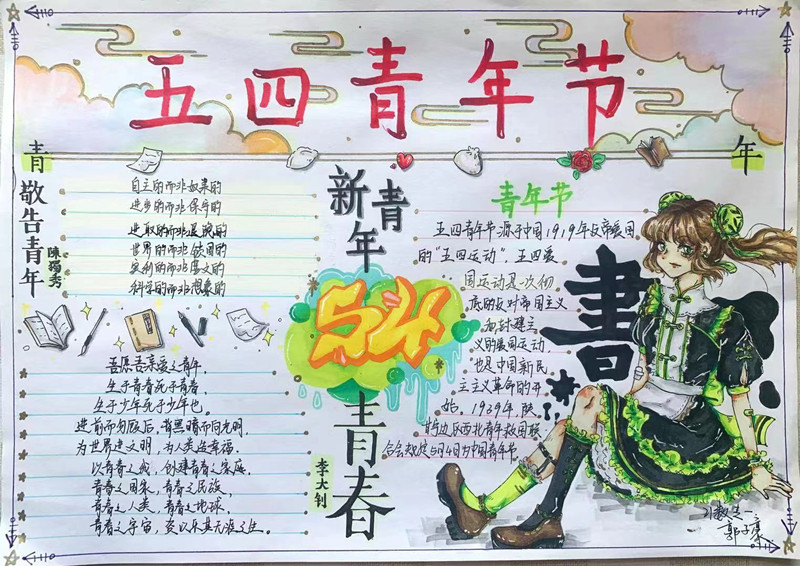 五四青年节
青
年
敬告青年
陈独秀
自主的而非奴隶的
进步的而非保守的
进取的而非退隐的
世界的而非锁国的
实利的而非虚文的
科学的而非想象的
新青年
54
青春
李大钊
吾愿吾亲爱之青年,
生于青春死于青春,
生于少年死于少年也。
进前而勿顾后,背黑暗而向光明,
为世界进文明,为人类造幸福,
以青春之我,创建青春之家庭,
青春之国家,青春之民族,
青春之人类,青春之地球,
青春之宇宙,资以乐其无涯之生。
青年节
五四青年节源于中国1919年反帝爱国
的“五四运动”,五四爱
国运动是一次彻
底的反对帝国主义
和封建主
义的爱国运动
也是中国新民
主主义革命的开
始。1939年,陕
甘宁边区西北青年救国联
合会规定5月4日为中国青年节
書